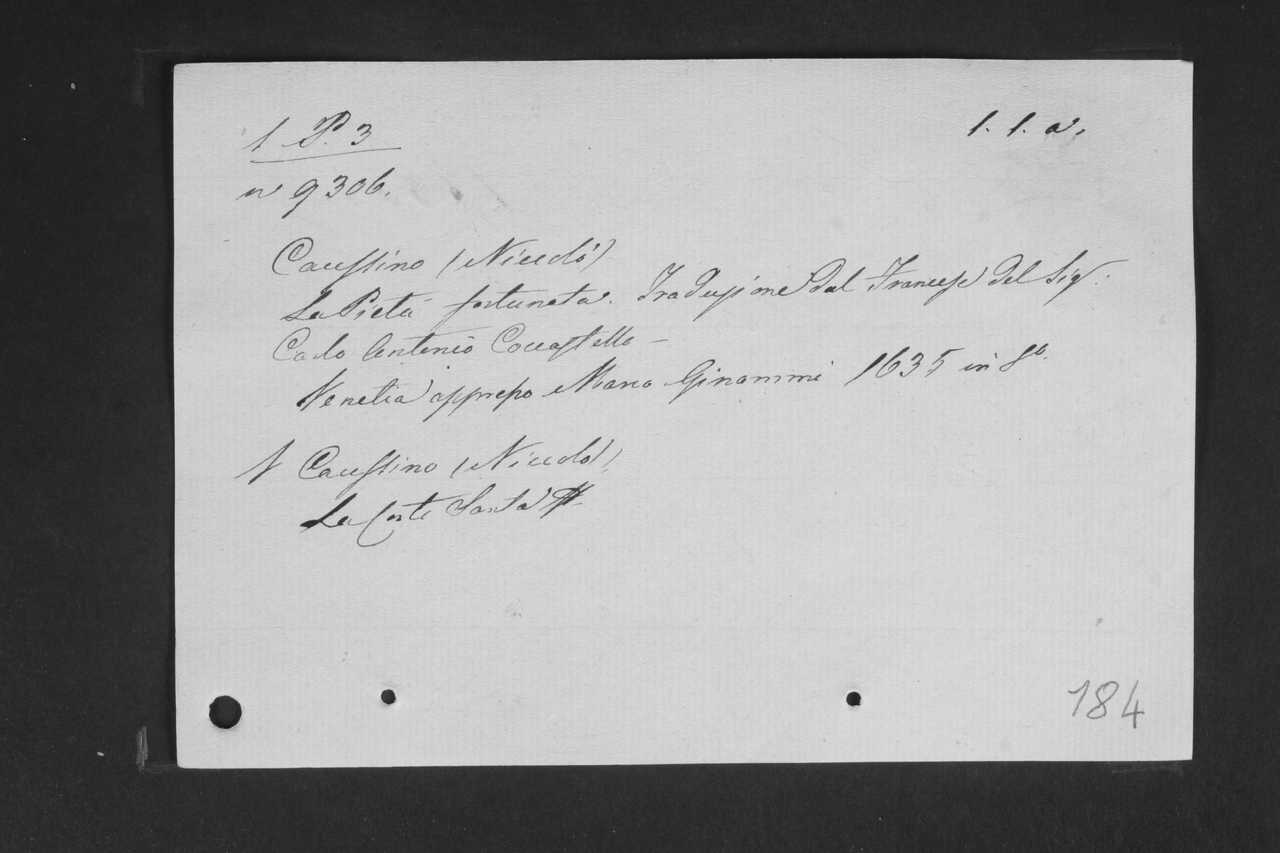 1 P. 3
1. 1. a.
nº 9306.
Caussino (Niccolò)
La Pietà fortunata. Traduzione dal Francese del Sigr.
Carlo Antonio Cocastello -
Venetia appresso Marco Ginammi 1635 in 8º.
1 Caussino (Niccolò)
La Corte Santa
184